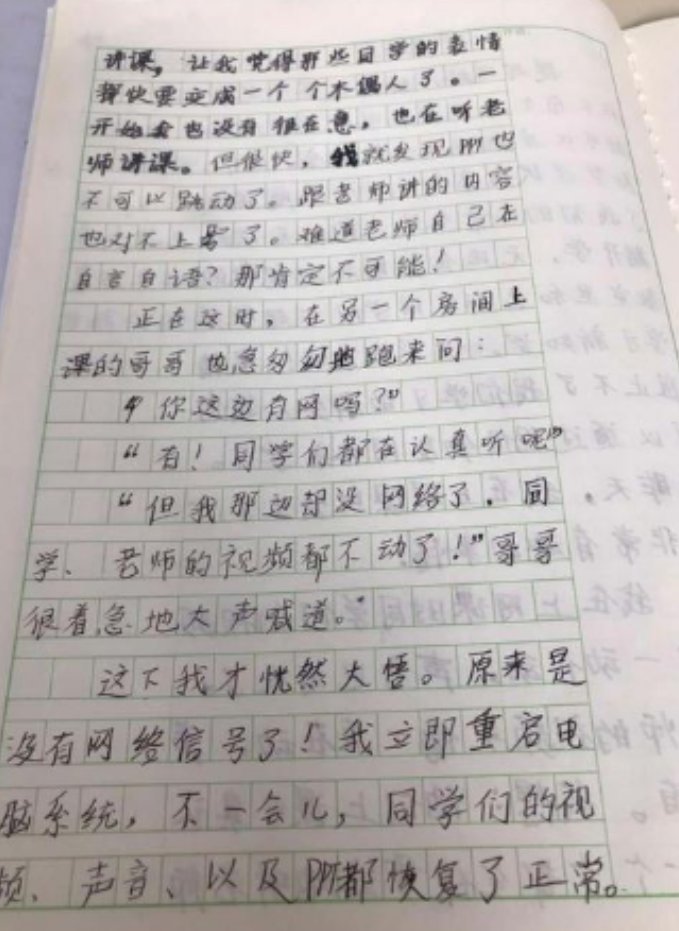 讲课，让我觉得那些同学的表情
都快要变成一个个木偶人了。一
开始我也没有很在意，也在听老
师讲课。但很快，我就发现PPt也
不可以跳动了。跟老师讲的内容
也对不上号了。难道老师自己在
自言自语？那肯定不可能！
正在这时，在另一个房间上
课的哥哥也急匆匆地跑来问：
“你这边有网吗？”
“有！同学们都在认真听呢”
“但我那边却没网络了．同
学、老师的视频都不动了！”哥哥
很着急地大声喊道。”
这下我才恍然大悟。原来是
没有网络信号了！我立即重启电
脑系统，不一会儿，同学们的视
频、声音、以及PPt都恢复了正常。